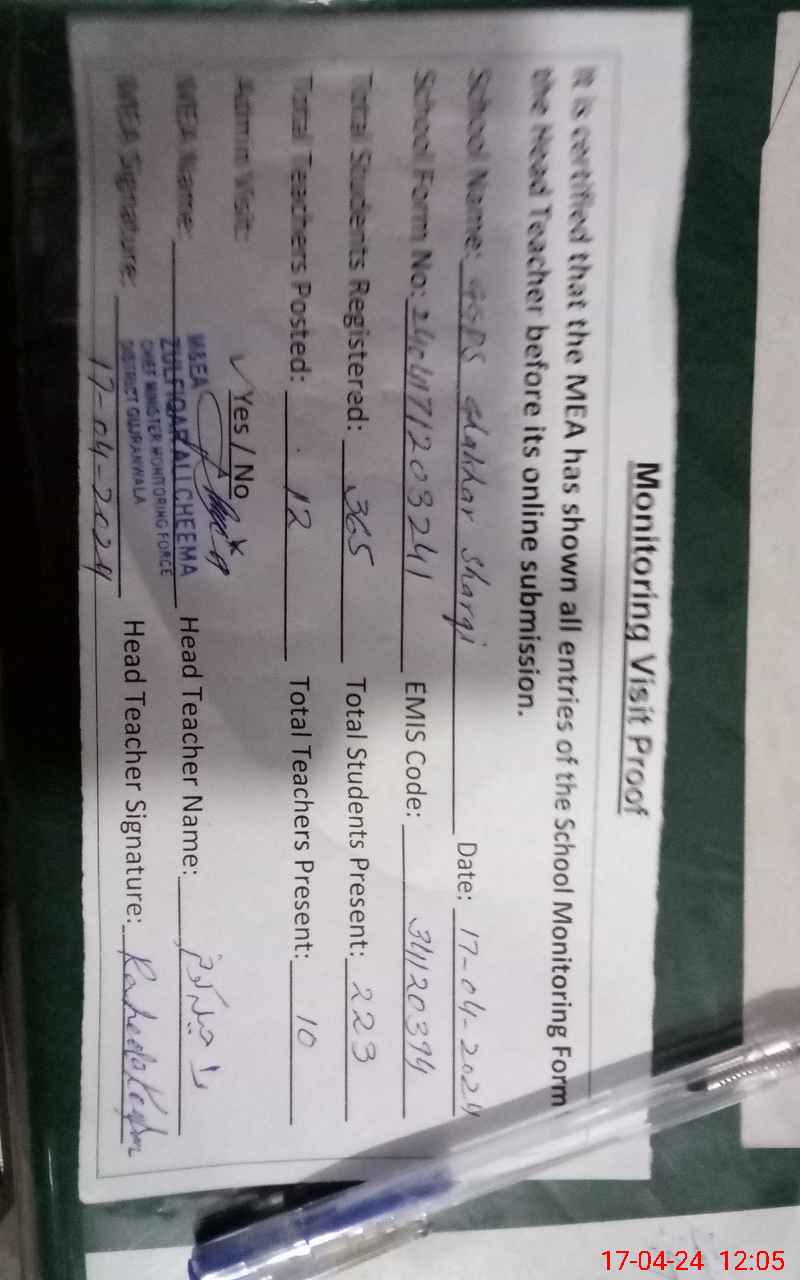 Monitoring Visit Proof
It is certified that the MEA has shown all entries of the School Monitoring Form
the Head Teacher before its online submission.
School Name: GGPS Shargi Date: 17-04-2024
School Form No: 2404171203241 EMIS Code: 34120394
Total Students Registered: 365 Total Students Present: 223
Total Teachers Posted: 12 Total Teachers Present: 10
Admin Visit: ✓ Yes / No
MEA Name: M&EA ZULFIQAR ALI CHEEMA Head Teacher Name:
CHIEF MINISTER MONITORING FORCE
DISTRICT GUJRANWALA
MEA Signature: Head Teacher Signature:
17-04-2024
17-04-24 12:05